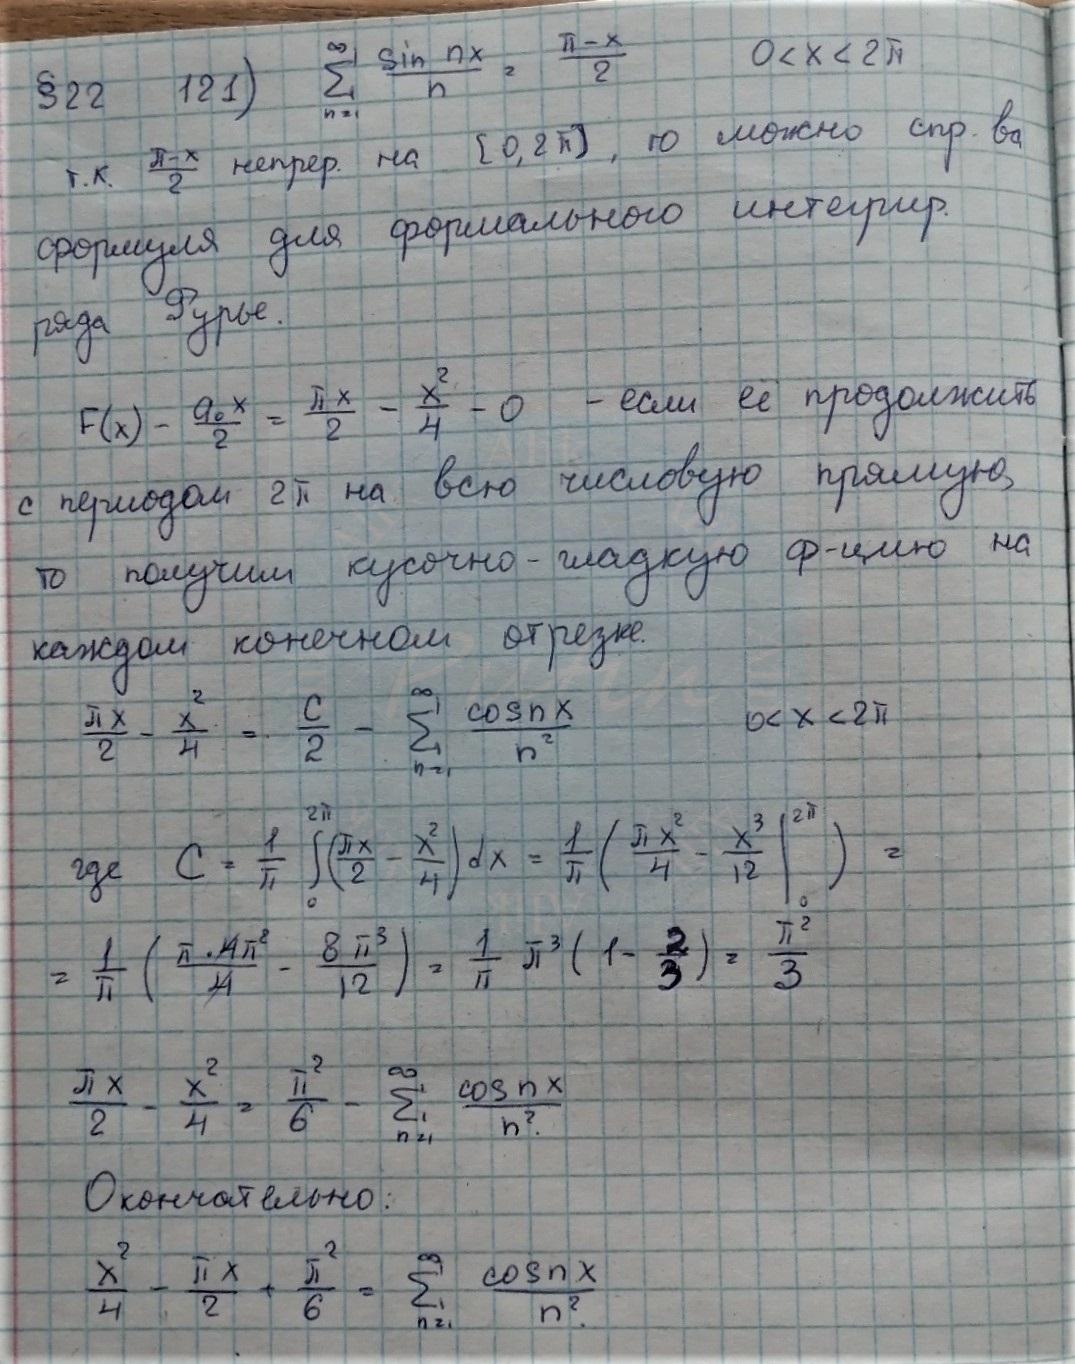 §22 121) ∑_{n=1}^{∞} sin nx / n = (π-x)/2 0<x<2π
т.к. (π-x)/2 непрер. на [0,2π], то можно спр. ва
формуля для формального интегрир.
ряда Фурье.
F(x) - a₀x/2 = πx/2 - x²/4 - 0 - если её продолжить
с периодом 2π на всю числовую прямую,
то получим кусочно-гладкую ф-цию на
каждом конечном отрезке.
πx/2 - x²/4 = C/2 - ∑_{n=1}^{∞} cos nx / n² 0<x<2π
где C = 1/π ∫_0^{2π} (πx/2 - x²/4) dx = 1/π (πx²/4 - x³/12 |_0^{2π}) =
= 1/π (π·4π²/4 - 8π³/12) = 1/π π³ (1 - 2/3) = π²/3
πx/2 - x²/4 = π²/6 - ∑_{n=1}^{∞} cos nx / n².
Окончательно:
x²/4 - πx/2 + π²/6 = ∑_{n=1}^{∞} cos nx / n².